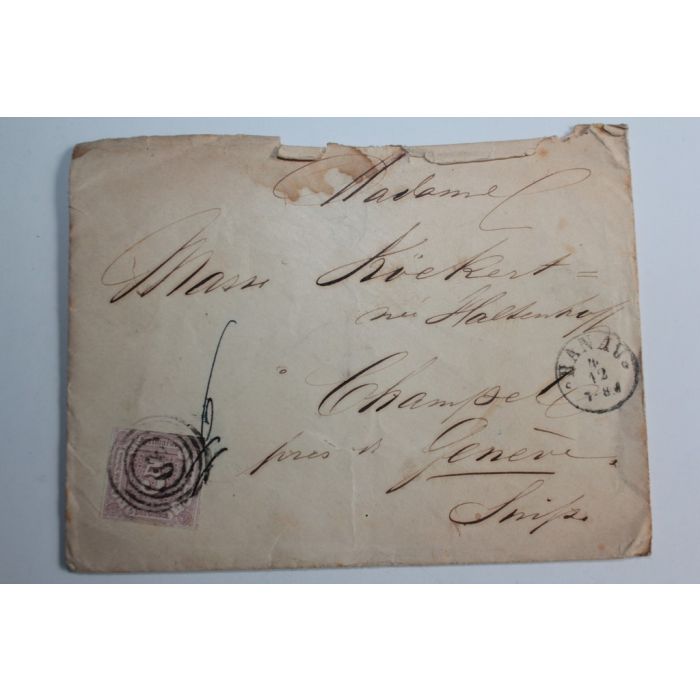 Madame
Massi Köckert=
née Haltenhoff
à Champel
près de Genève.
Suiſse
HANAU
4
12
7-8